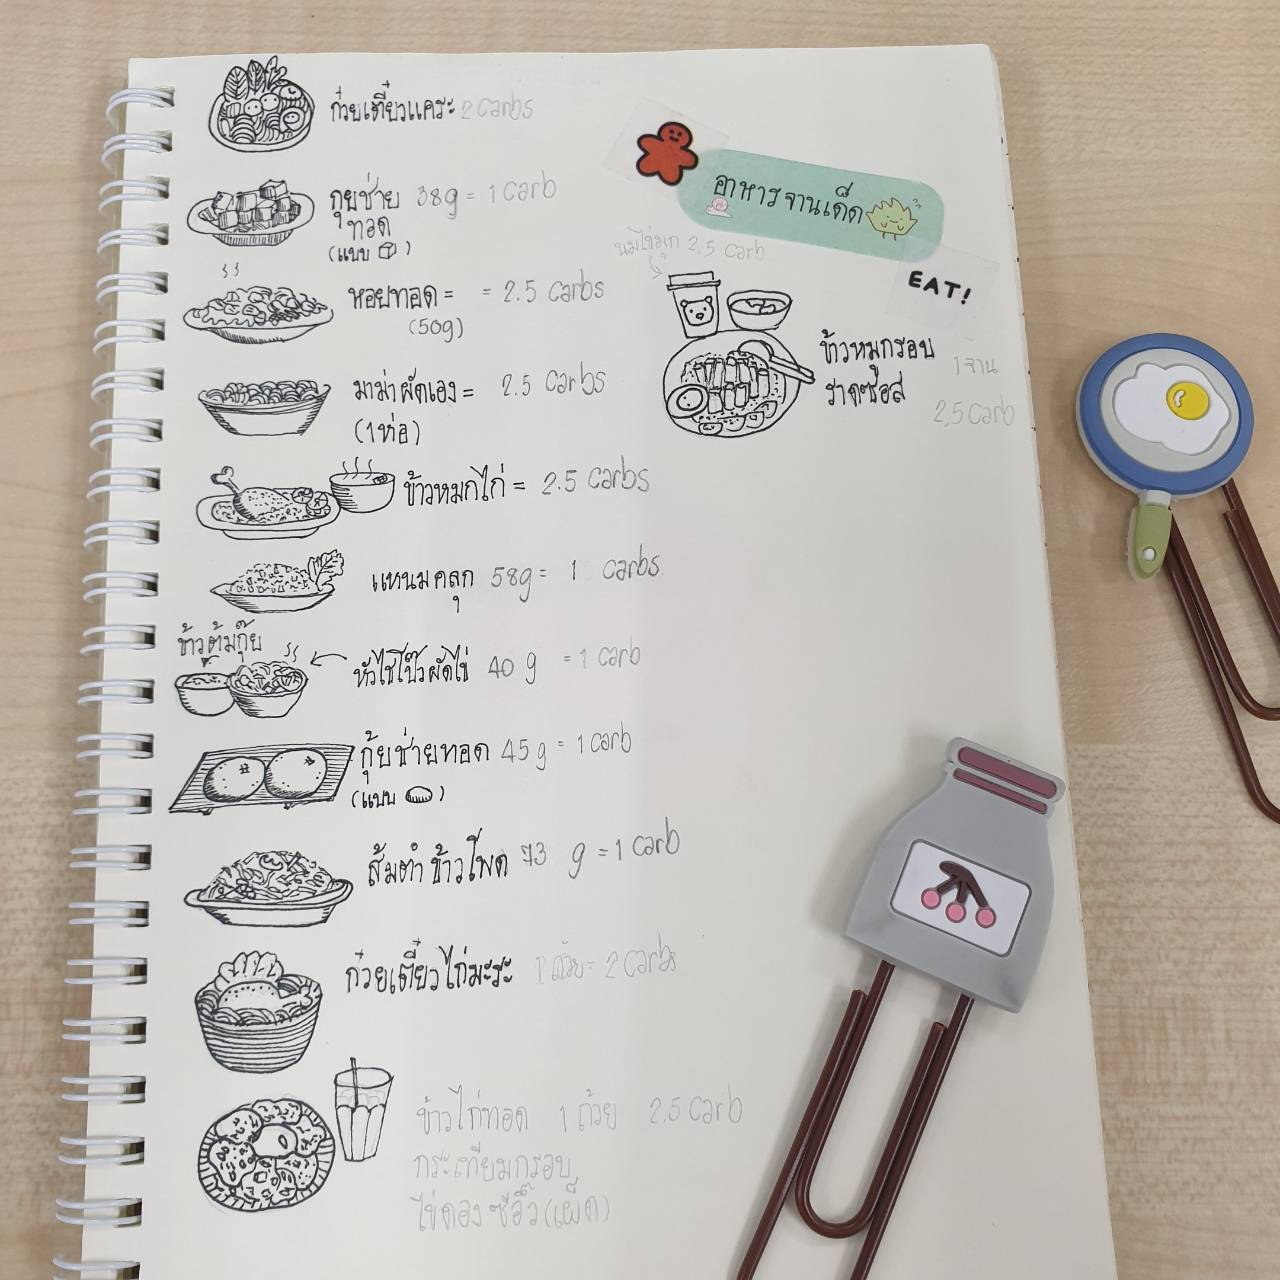 ก๋วยเตี๋ยวแคระ 2 carbs
กุยช่าย 38g = 1 carb
ทอด
(แบบ )
หอยทอด = = 2.5 carbs
(50g)
มาม่าผัดเอง = 2.5 carbs
(1ห่อ)
ข้าวหมกไก่ = 2.5 carbs
แหนมคลุก 58g = 1 carbs
ข้าวต้มกุ๊ย
หัวไชโป๊วผัดไข่ 40 g = 1 carb
กุ้ยช่ายทอด 45 g = 1 carb
(แบบ )
ส้มตำข้าวโพด 73 g = 1 carb
ก๋วยเตี๋ยวไก่มะระ 1 ถ้วย = 2 carbs
ข้าวไก่ทอด 1 ถ้วย 2.5 carb
กระเทียมกรอบ
ไข่ดองซีอิ๊ว (เผ็ด)
อาหารจานเด็ด
EAT!
นมไข่มุก 2.5 carb
ข้าวหมูกรอบ 1 จาน
ราดซอส 2.5 carb